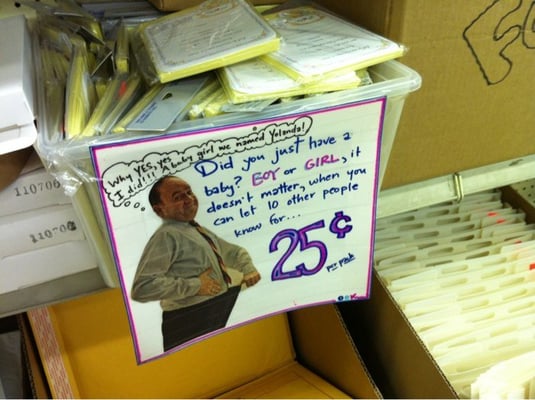 Why YES, yes
I did!!! A baby girl we named Yolanda!
Did you just have a
baby? BOY or GIRL, it
doesn't matter, when you
can let 10 other people
know for...
25¢
per pack
110706